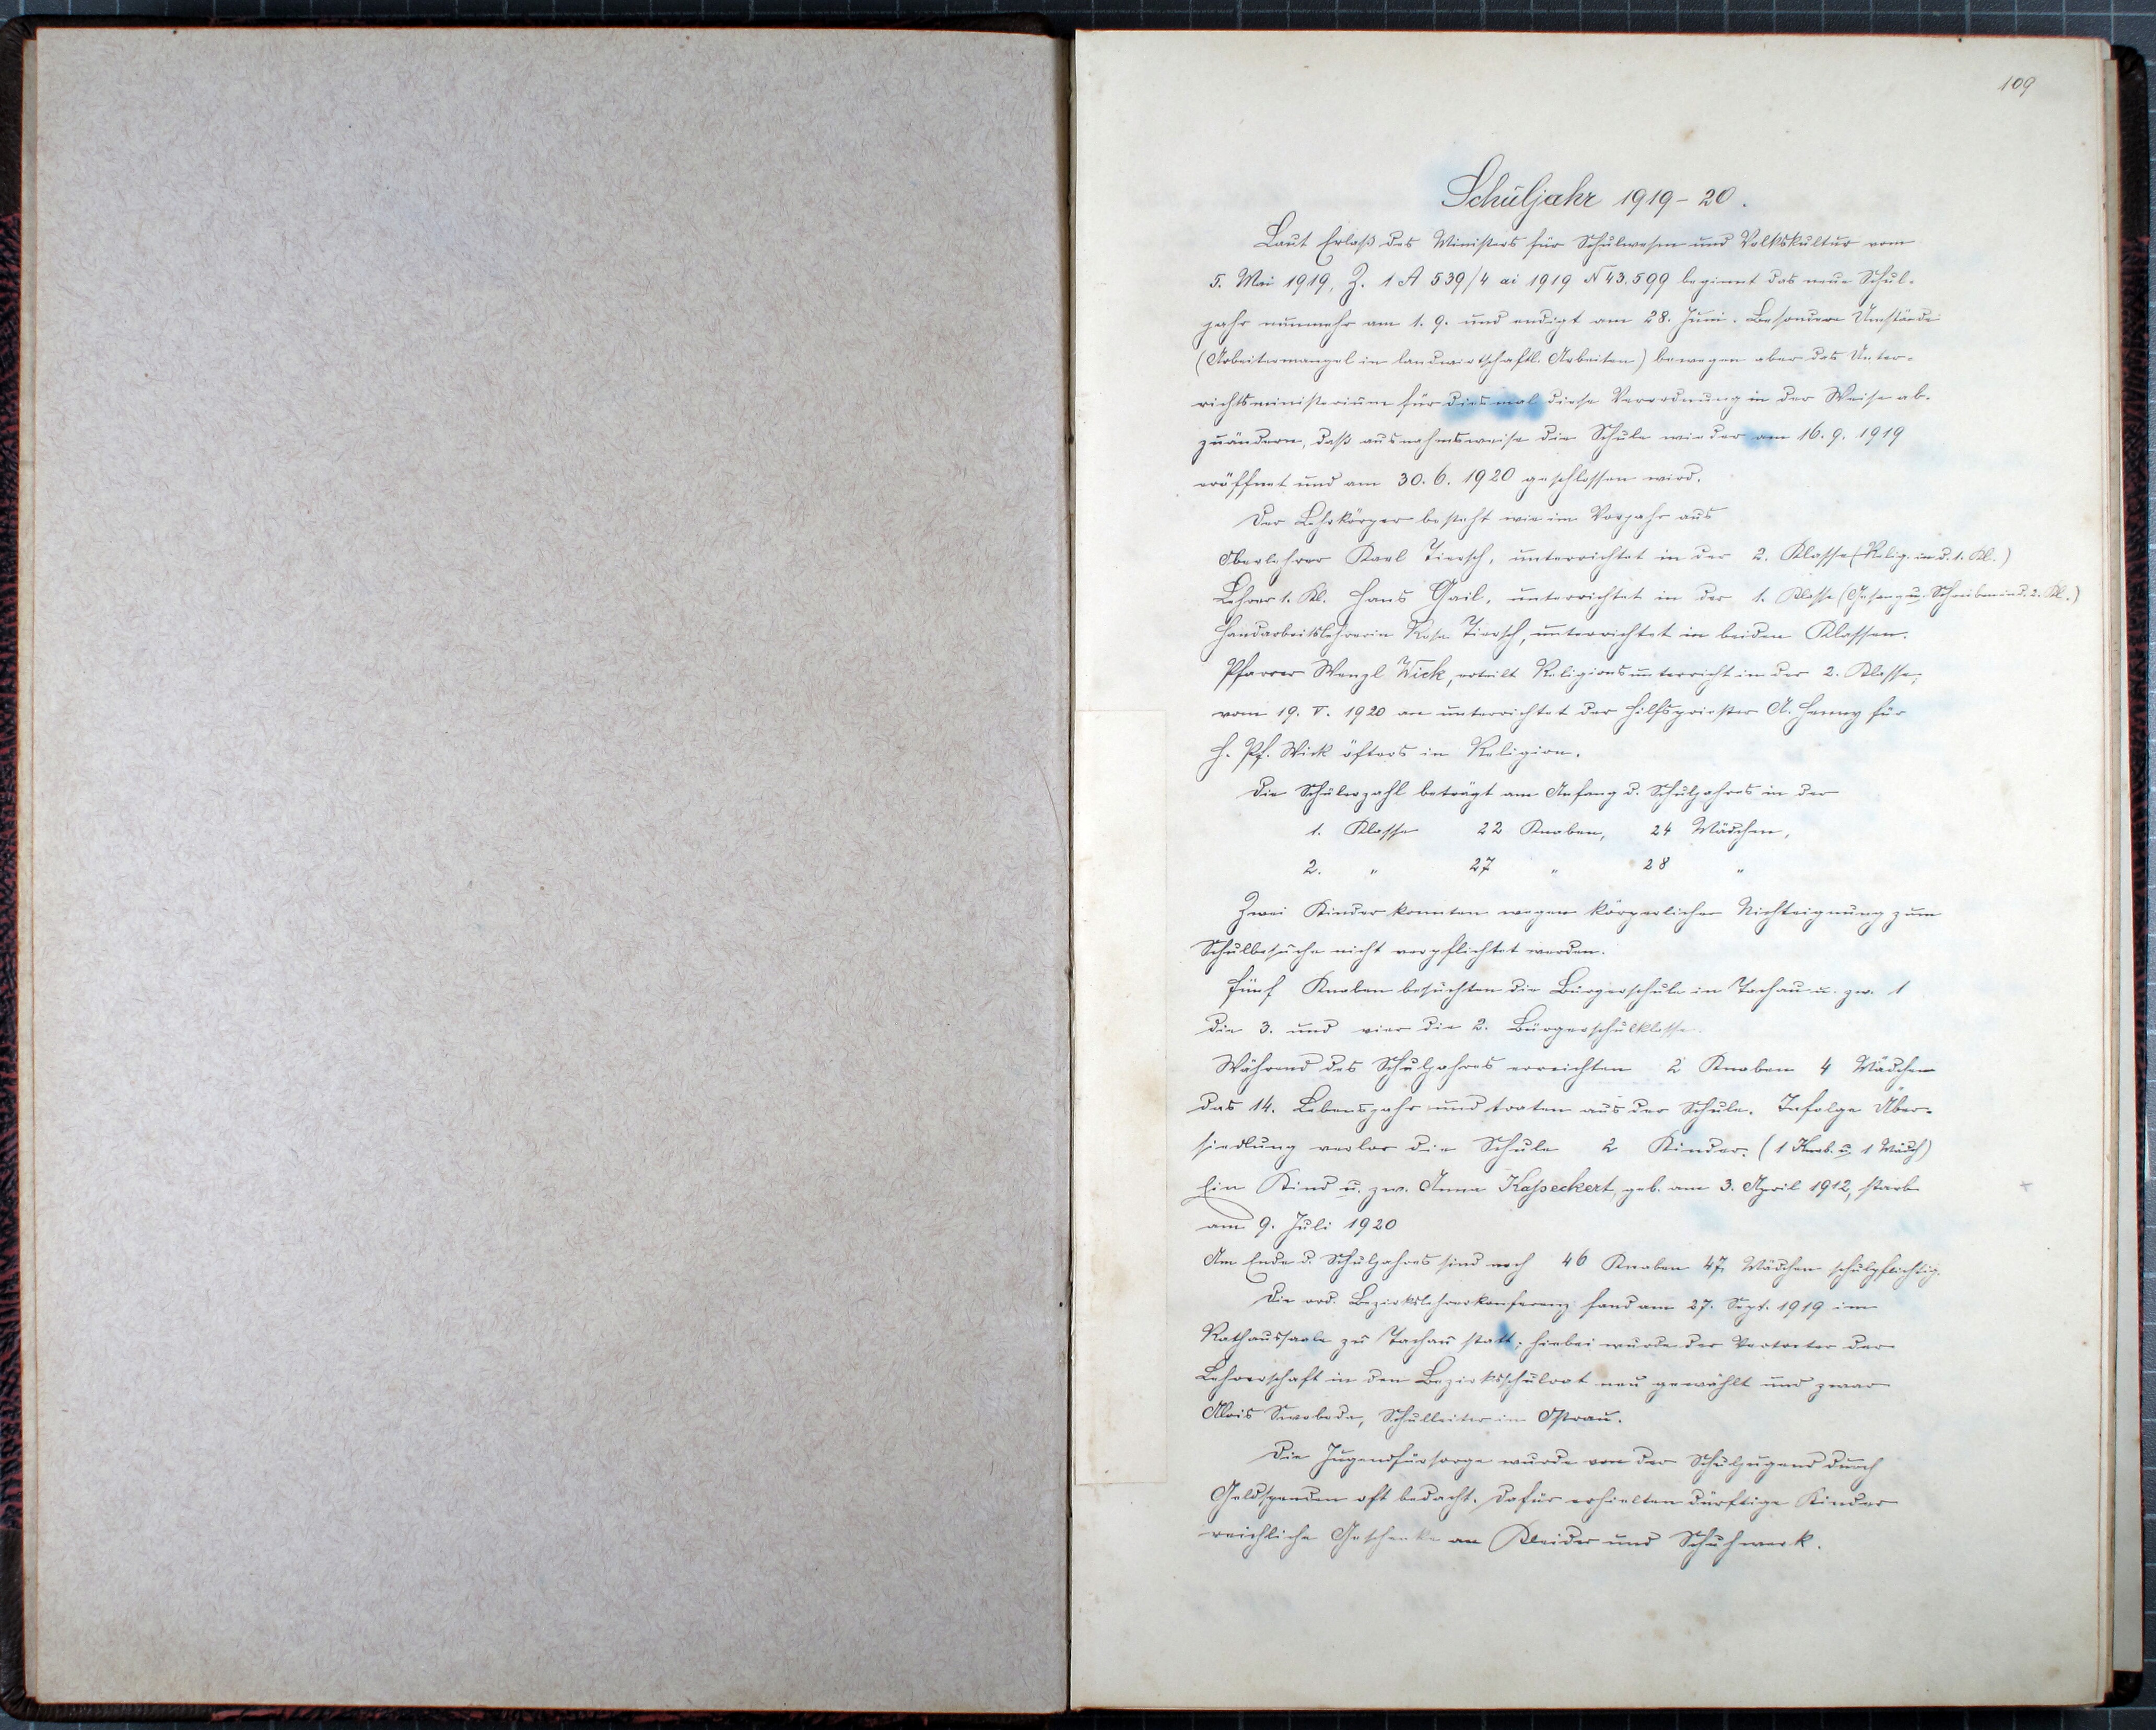 109
Schuljahr 1919-20.
Laut Erlaß des Ministers für Schulwesen und Volkskultur vom
5. Mai 1919, Z. 1 A 539/4 ai 1919 N 43.599 beginnt das neue Schul-
jahr nunmehr am 1. 9. und endigt am 28. Juni. Besondere Umstände
(Arbeitermangel in landwirtschaftl. Arbeiten) bewegen aber das Unter-
richtsministerium für diesmal diese Verordnung in der Weise ab-
zuändern, daß ausnahmsweise die Schule wieder am 16. 9. 1919
eröffnet und am 30. 6. 1920 geschlossen wird.
Der Lehrkörper besteht wie im Vorjahr aus
Oberlehrer Karl Tiersch, unterrichtet in der 2. Klasse (Relig. in d. 1. Kl.)
Lehrer 1. Kl. Hans Gail, unterrichtet in der 1. Klasse (Gesang u. Schreiben in d. 2. Kl.)
Handarbeitslehrerin Rosa Tiersch, unterrichtet in beiden Klassen.
Pfarrer Wenzl Wick, erteilt Religionsunterricht in der 2. Klasse;
vom 19. V. 1920 an unterrichtet der Hilfspriester A. für
H. Pf. Wick öfters in Religion.
Die Schülerzahl beträgt am Anfang d. Schuljahres in der
1. Klasse 22 Knaben, 24 Mädchen,
2. " 27 " 28 "
Zwei Kinder konnten wegen körperlicher Nichteignung zum
Schulbesuche nicht verpflichtet werden.
Fünf Knaben besuchten die Bürgerschule in Tachau u. zw. 1
die 3. und vier die 2. Bürgerschulklasse.
Während des Schuljahres erreichten 2 Knaben 4 Mädchen
das 14. Lebensjahr und traten aus der Schule. Infolge Über-
siedlung verlor die Schule 2 Kinder. (1 Knab. u. 1 Mädch)
Ein Kind u. zw. Anna Kaßeckert, geb. am 3. April 1912, starb
am 9. Juli 1920
Am Ende d. Schuljahres sind noch 46 Knaben 47 Mädchen schulpflichtig.
Die ord. Bezirkslehrerkonferenz fand am 27. Sept. 1919 im
Rathaussaale zu Tachau statt; hiebei wurde der Vertreter der
Lehrerschaft in den Bezirksschulrat neu gewählt und zwar
Alois Swoboda, Schulleiter in Ostrau.
Die Jugendfürsorge wurde von der Schuljugend durch
Geldspenden oft bedacht. Dafür erhielten dürftige Kinder
reichliche Geschenke an Kleider und Schuhwerk.